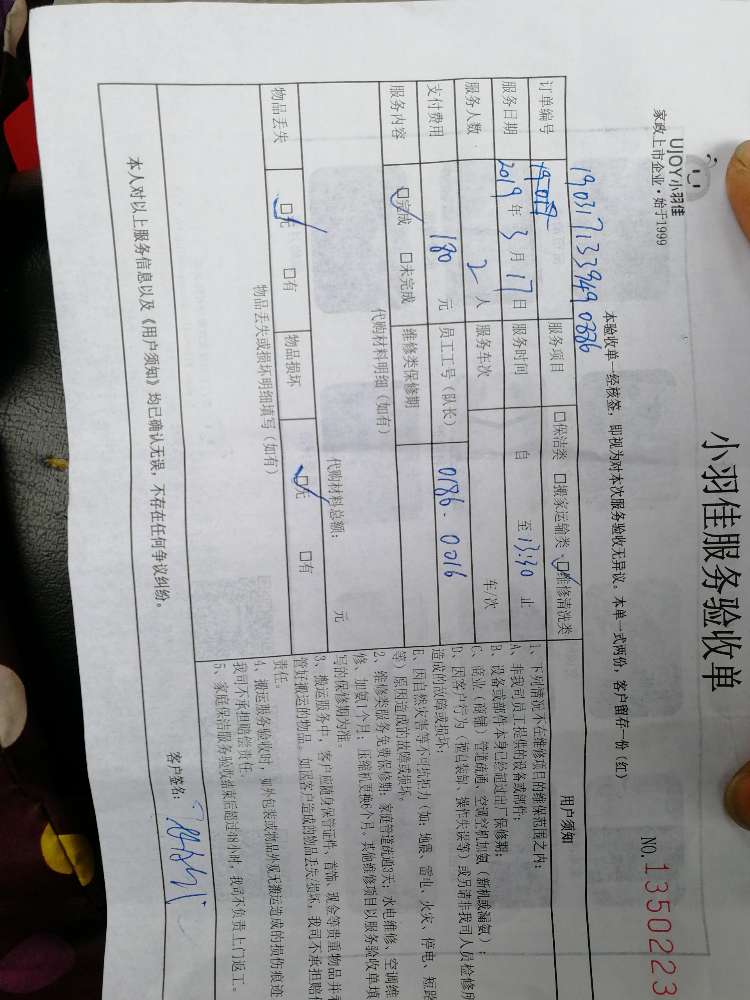 UJOY小羽佳
家政上市企业·始于1999
小羽佳服务验收单
NO. 1350223
本验收单一经核签，即视为对本次服务验收无异议。本单一式两份，客户留存一份（红）
订单编号 19031713394903
服务项目 □保洁类 □搬家运输类 ☑维修清洗类
服务日期 2019年3月17日 服务时间 自 至13:30止
服务人数 2人 服务车次 车/次
支付费用 180元 员工工号（队长） 0186.0016
服务内容 ☑完成 □未完成 维修类保修期
代购材料明细（如有）
代购材料总额： 元
物品丢失 ☑无 □有 物品损坏 ☑无 □有
物品丢失或损坏明细填写（如有）
用户须知
1、下列情况不在维修项目的维保范围之内：
A、非我司员工提供的设备或部件；
B、设备或部件本身已经超过出厂保修期；
C、商业（商铺）管道疏通、空调空机加氨（新机或漏氨）；
D、因客户行为（擅自装卸、操作失误等）或另请非我司人员检修所
造成的故障或损坏；
E、因自然灾害等不可抗拒力（如：地震、雷电、火灾、停电、短路
等）原因造成的故障或损坏。
2、维修类服务免费保修期：家庭管道疏通3天；水电维修、空调维
修、加氨1个月；压缩机更换6个月，其他维修项目以服务验收单填
写治保修期为准。
3、搬运服务中，客户应随身保管证件、首饰、现金等贵重物品并看
管好搬运的物品。如因客户造成的物品丢失/损坏，我司不承担赔偿
责任。
4、搬运服务验收时，如外包装或物品外观无搬运造成的损伤痕迹
我司不承担赔偿责任。
5、家庭保洁服务验收结束后超过48小时，我司不负责上门返工。
本人对以上服务信息以及《用户须知》均已确认无误，不存在任何争议纠纷。
客户签名：